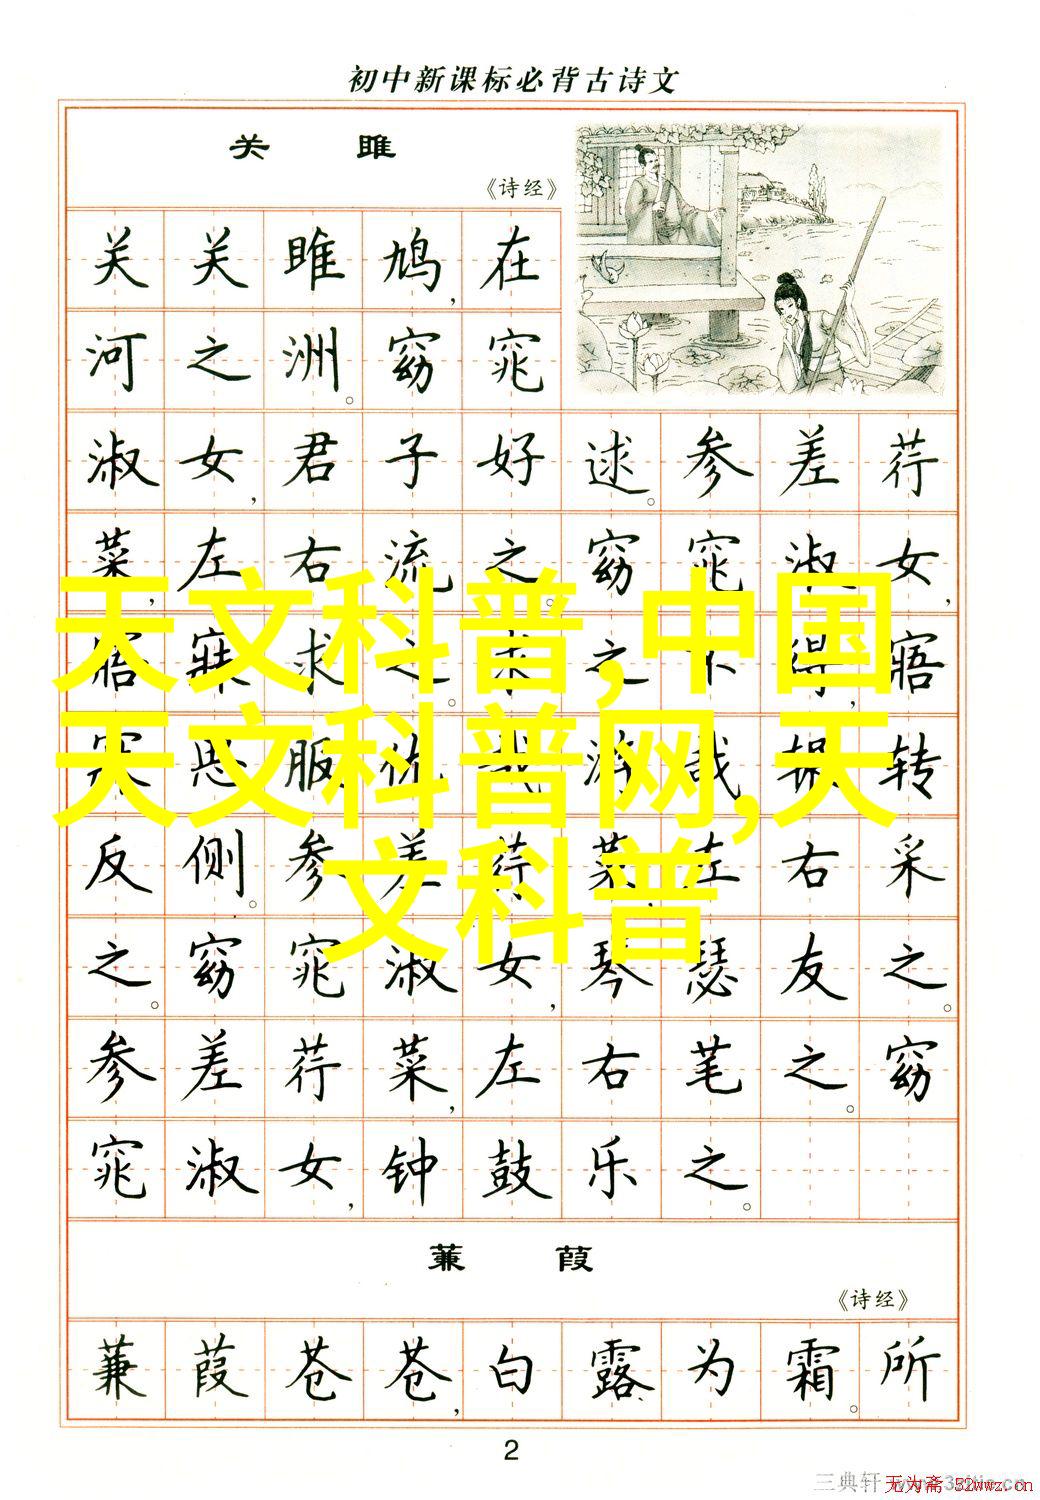 初中新课标必背古诗文
关 雎
《诗经》
关关雎鸠,在
河之洲。窈窕
淑女,君子好逑。参差荇
菜,左右流之。窈窕淑女,
寤寐求之。求之不得,寤
寐思服。优哉游哉,辗转
反侧。参差荇菜,左右采
之。窈窕淑女,琴瑟友之。
参差荇菜,左右芼之。窈
窕淑女,钟鼓乐之。
天文科普,中国
天文科普网,天
文科普
蒹 葭
《诗经》
蒹葭苍苍,白露为霜。所
2
三典轩
无为斋 52wwz.cn